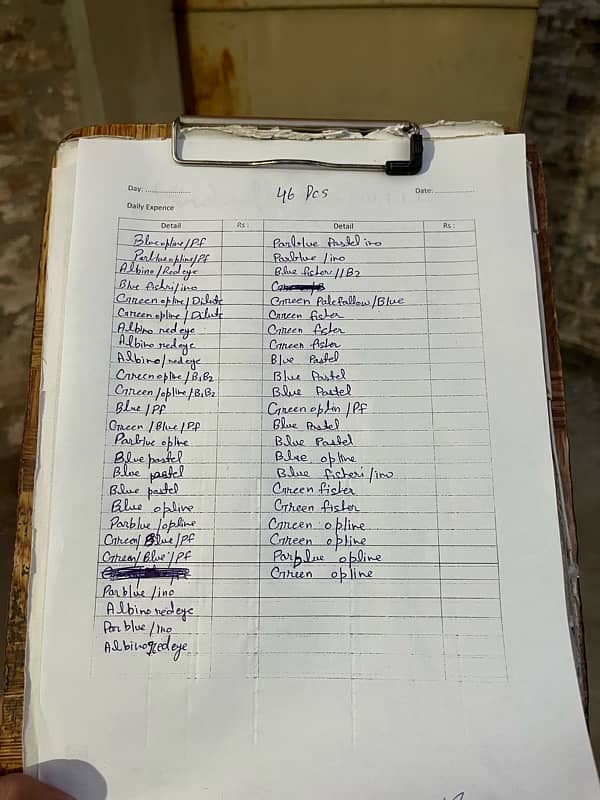 46 Pcs
Day: ....................
Date: ..................
Daily Expence
Detail
Rs :
Detail
Rs :
Blue opline/PF
Parblue opline/PF
Albino/Redeye
Blue fishri/ino
Green opline/Dilute
Green opline/Dilute
Albino redeye
Albino redeye
Albino/redeye
Green opline/B1B2
Green/opline/B1B2
Blue/PF
Green/Blue/PF
Parblue opline
Blue pastel
Blue pastel
Blue pastel
Blue opline
Parblue/opline
Green/Blue/PF
Green/Blue/PF
Parblue/ino
Albino redeye
Parblue/ino
Albino redeye
Parblue Pastel ino
Parblue/ino
Blue fisher//B2
Green Palefallow/Blue
Green fisher
Green fisher
Green fisher
Blue Pastel
Blue Pastel
Blue Pastel
Green optin/PF
Blue Pastel
Blue Pastel
Blue opline
Blue fisheri/ino
Green fisher
Green fisher
Green opline
Green opline
Parblue opline
Green opline